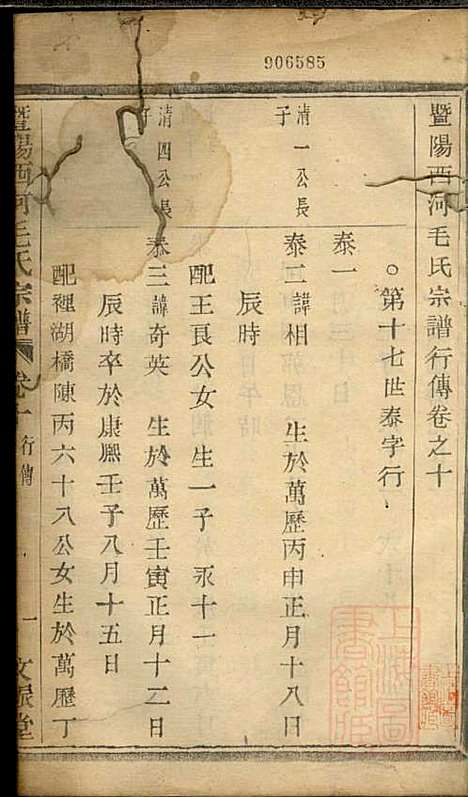 906585
暨陽西河毛氏宗譜行傳卷之十
○第十七世泰字行
泰一
清一公長子
泰二諱相　生於萬歷丙申正月十八日
辰時
配王良公女　生一子　永十一
清四公長子
泰三諱奇英　生於萬歷壬寅正月十二日
辰時卒於康熈壬子八月十五日
配裡湖橋陳丙六十八公女生於萬歷丁
暨陽西河毛氏宗譜　卷十　行傳　一
上海圖書館